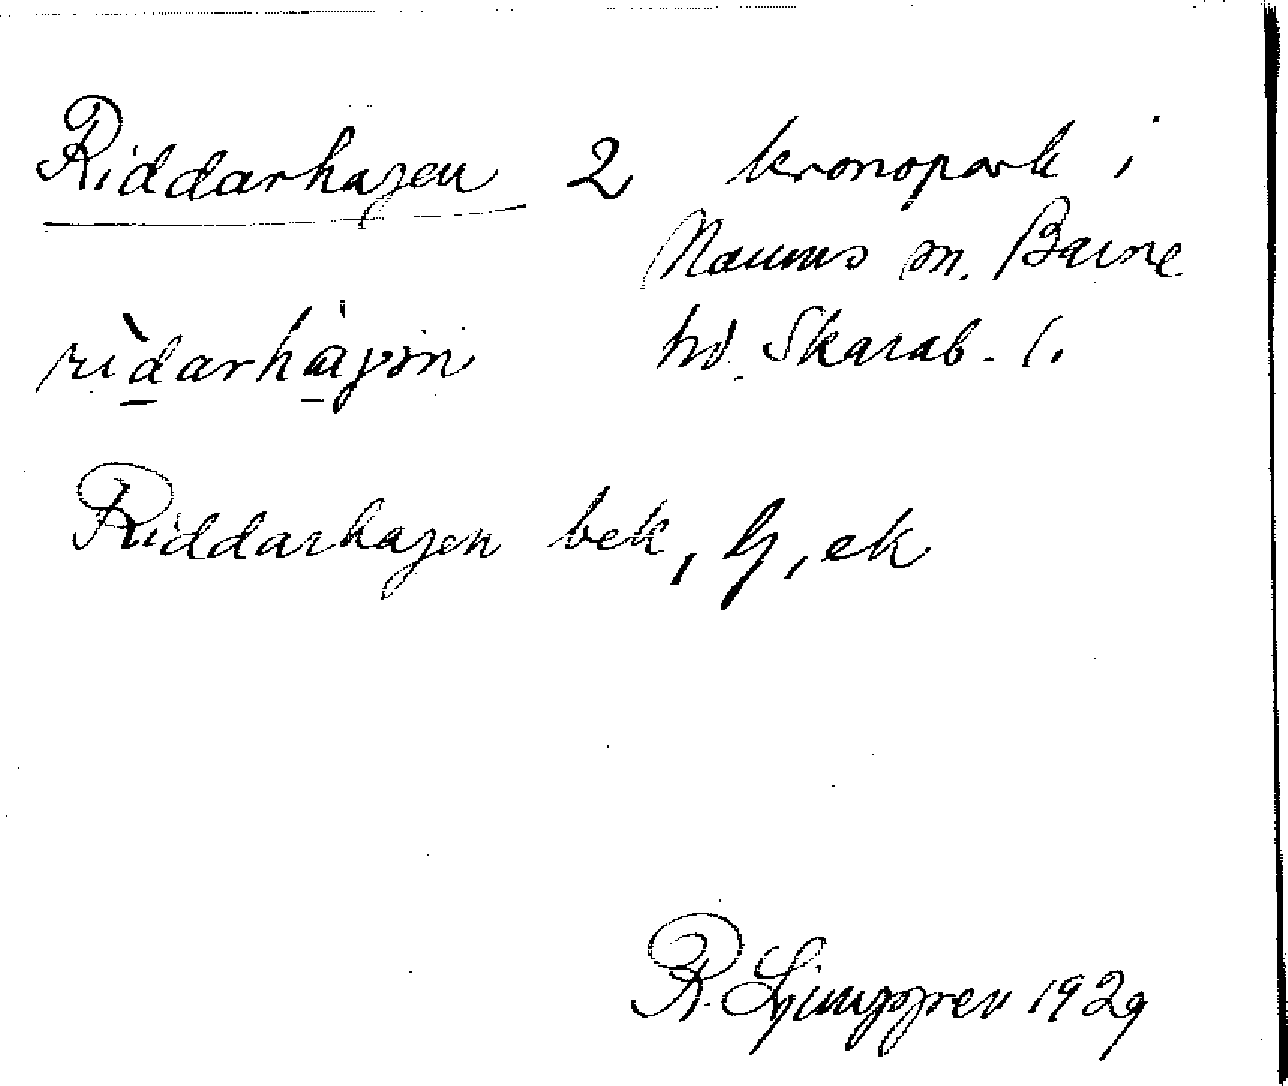 Riddarhagen 2 kronopark i
Naums sn. Barne
hd. Skarab. l.
rìdarhàgen
Riddarhagen bek, G, ek
R. Ljunggren 1929